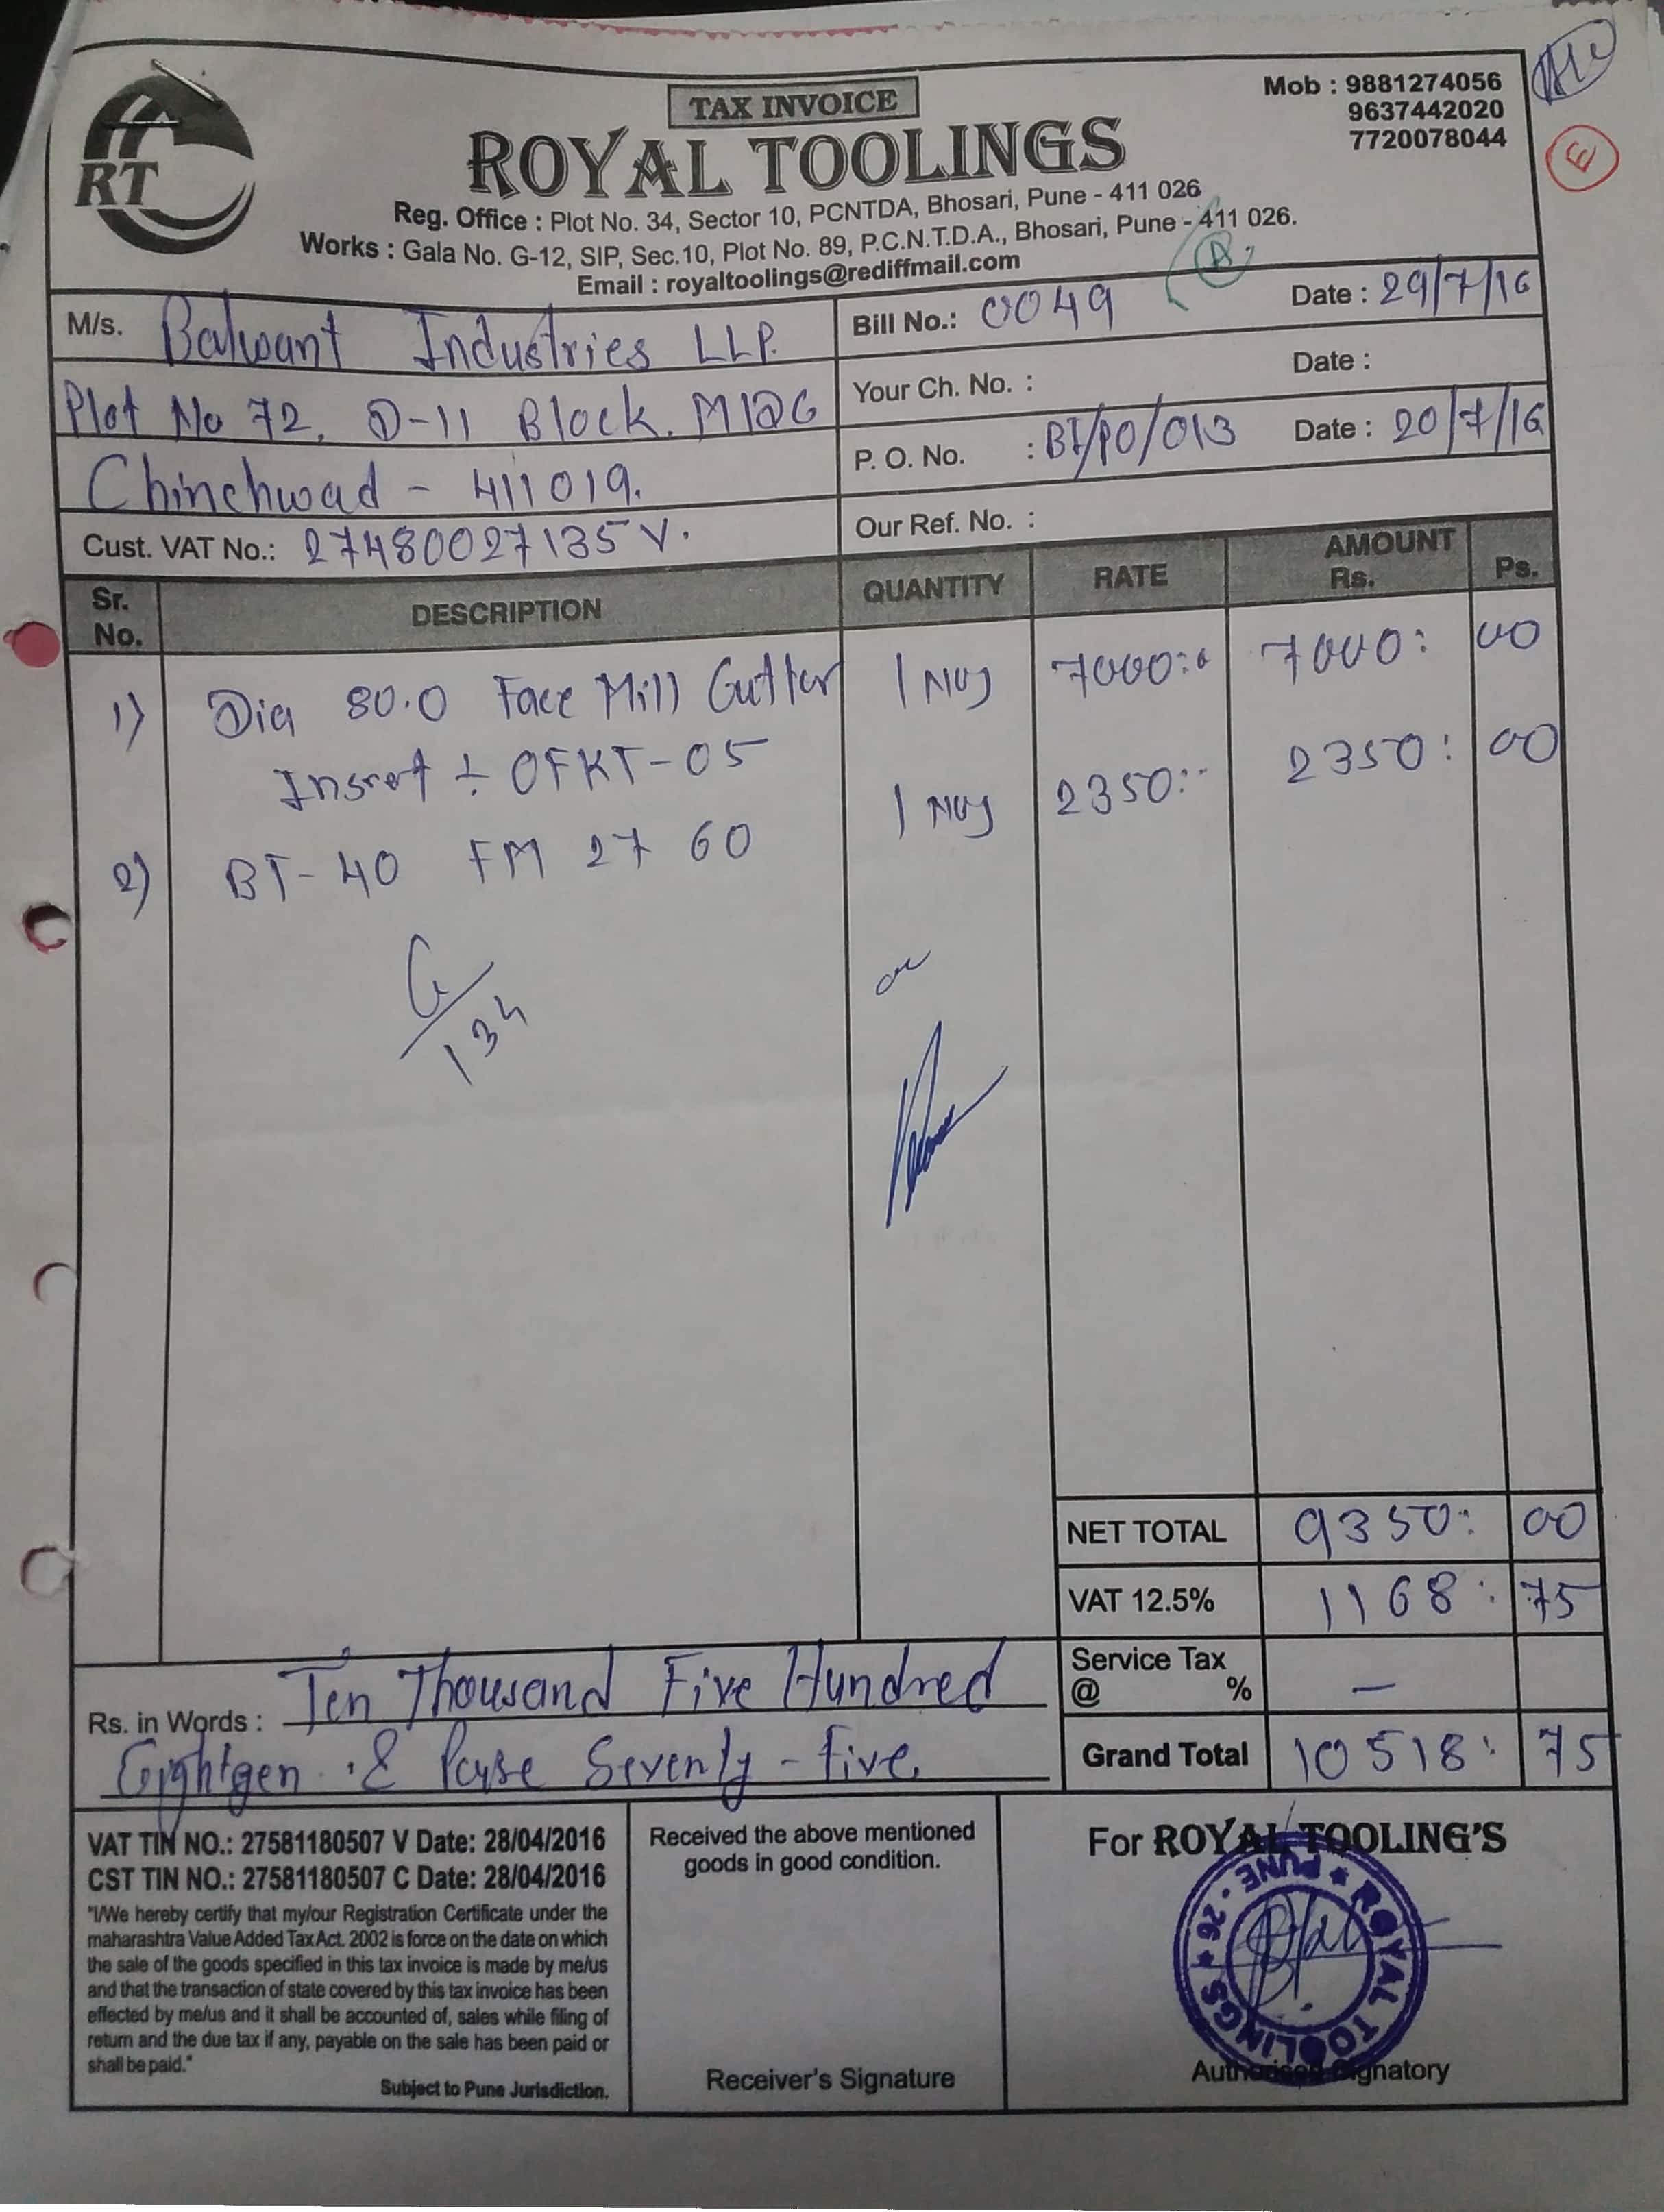 TAX INVOICE
Mob : 9881274056
9637442020
7720078044
RT
ROYAL TOOLINGS
Reg. Office : Plot No. 34, Sector 10, PCNTDA, Bhosari, Pune - 411 026
Works : Gala No. G-12, SIP, Sec.10, Plot No. 89, P.C.N.T.D.A., Bhosari, Pune - 411 026.
Email : royaltoolings@rediffmail.com
E
A
M/s. Balwant Industries LLP.
Plot No 72, D-11 Block. MIDC
Chinchwad - 411019.
Cust. VAT No.: 27480027135 V.
Bill No.: 0049 Date : 29/7/16
Your Ch. No. : Date :
P. O. No. : BI/PO/013 Date : 20/7/16
Our Ref. No. :
Sr. No. DESCRIPTION QUANTITY RATE AMOUNT Rs. Ps.
1) Dia 80.0 Face Mill Cutter 1 Nos 7000: 7000: 00
Insret ÷ OFKT-05
2) BT-40 FM 27 60 1 Nos 2350: 2350: 00
134
NET TOTAL 9350: 00
VAT 12.5% 1168: 75
Service Tax @ % —
Grand Total 10518: 75
Rs. in Words : Ten Thousand Five Hundred
Eightgen & Payse Seventy-five
VAT TIN NO.: 27581180507 V Date: 28/04/2016
CST TIN NO.: 27581180507 C Date: 28/04/2016
"I/We hereby certify that my/our Registration Certificate under the
maharashtra Value Added Tax Act. 2002 is force on the date on which
the sale of the goods specified in this tax invoice is made by me/us
and that the transaction of state covered by this tax invoice has been
effected by me/us and it shall be accounted of, sales while filing of
return and the due tax if any, payable on the sale has been paid or
shall be paid."
Subject to Pune Jurisdiction.
Received the above mentioned
goods in good condition.
Receiver's Signature
For ROYAL TOOLING'S
ROYAL TOOLINGS ★ PUNE - 26 ★
Authorised Signatory